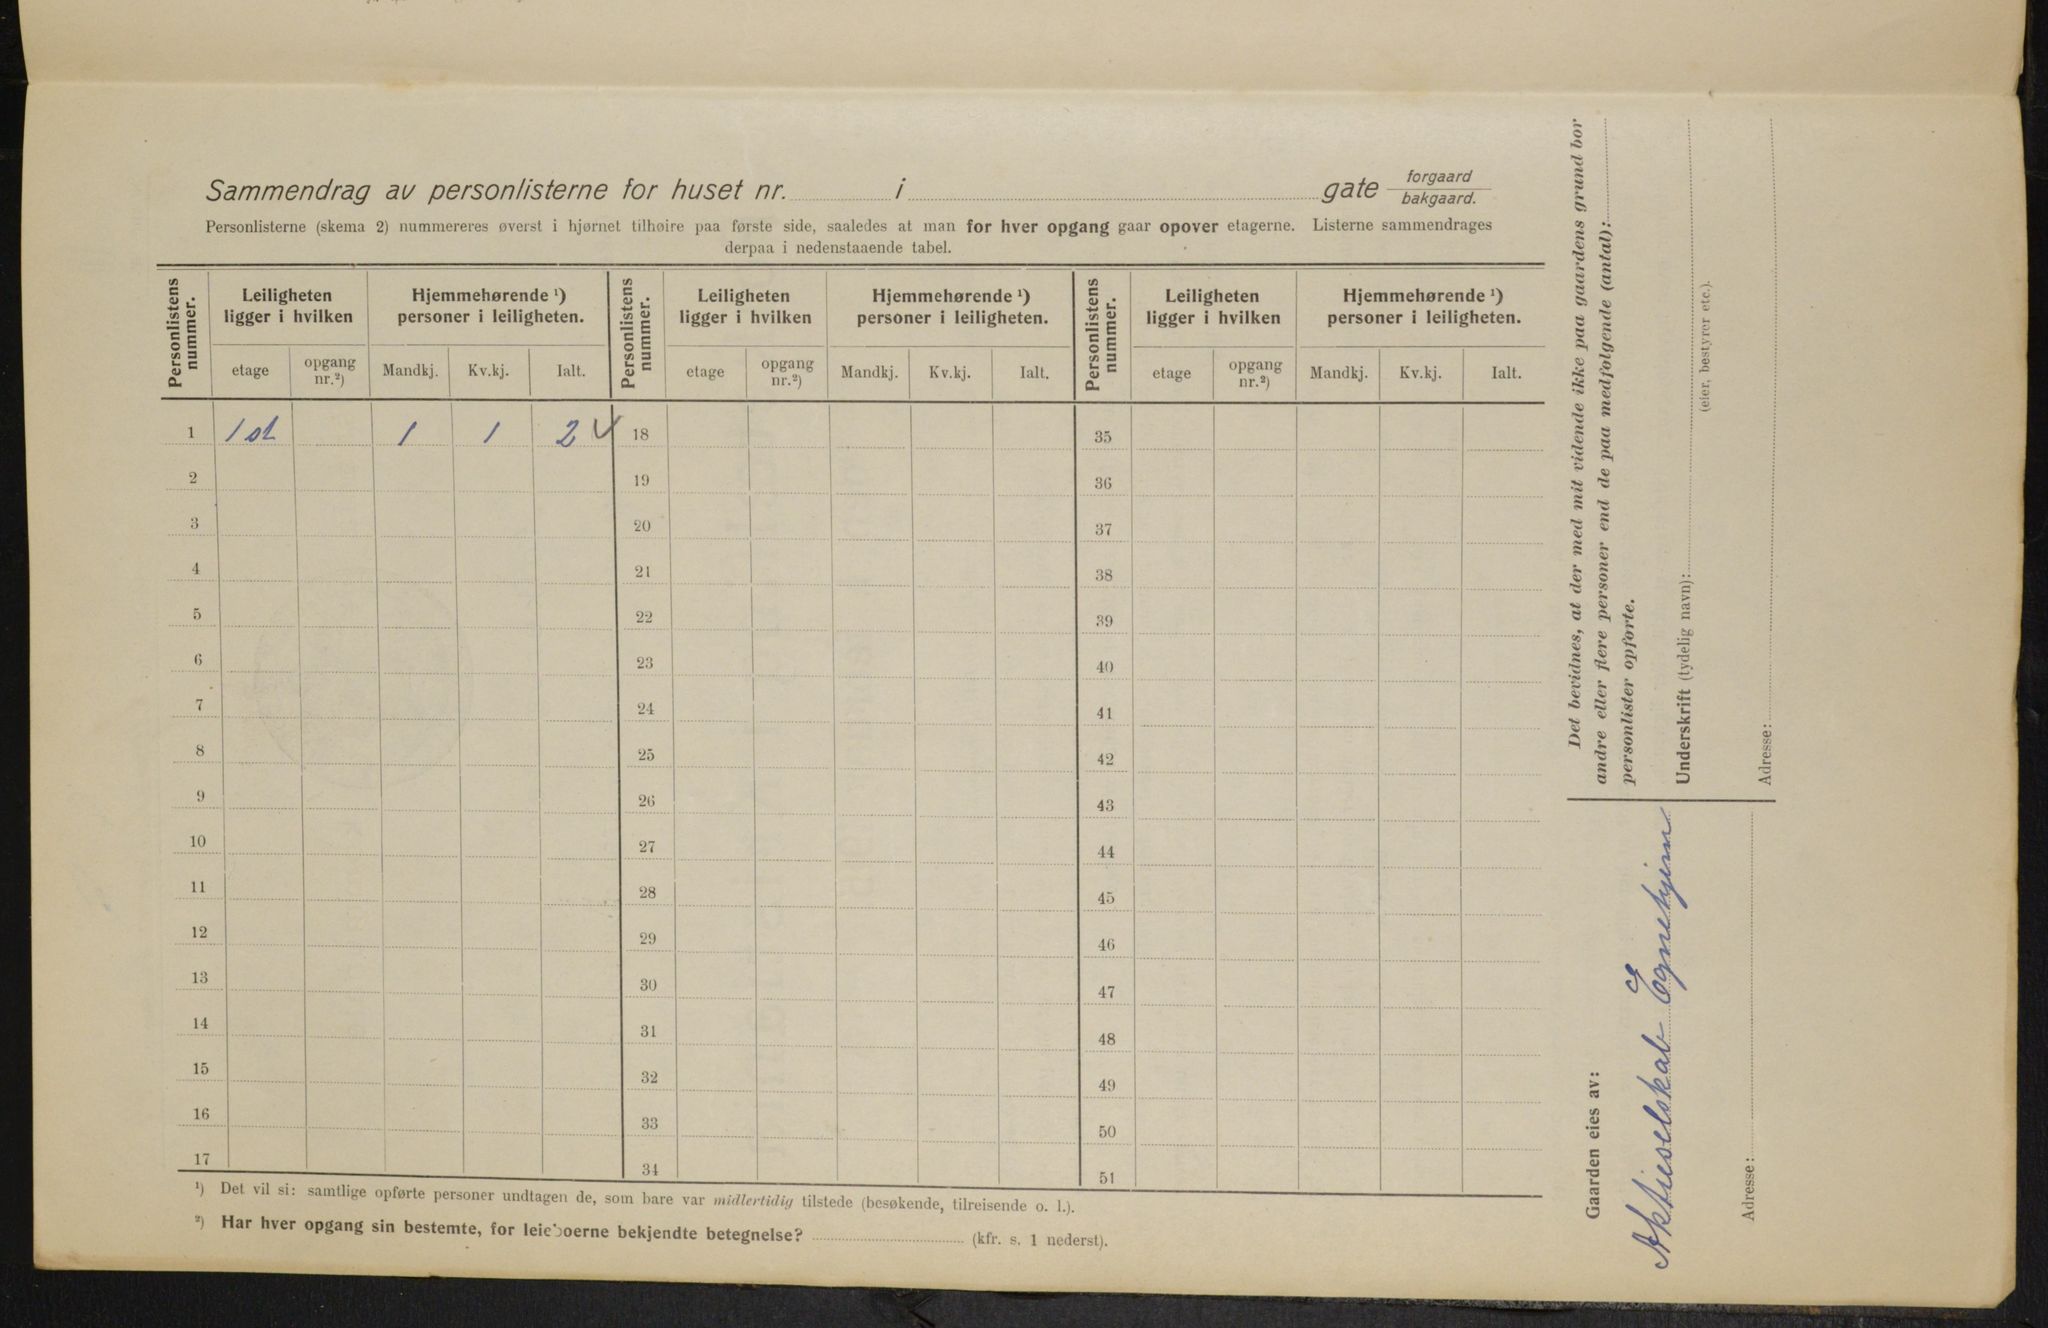 Sammendrag av personlisterne for huset nr. i gate forgaard bakgaard.
Personlisterne (skema 2) nummereres øverst i hjørnet tilhøire paa første side, saaledes at man for hver opgang gaar opover etagerne. Listerne sammendrages
derpaa i nedenstaaende tabel.
Personlistens nummer. Leiligheten ligger i hvilken Hjemmehørende ¹) personer i leiligheten. Personlistens nummer. Leiligheten ligger i hvilken Hjemmehørende ¹) personer i leiligheten. Personlistens nummer. Leiligheten ligger i hvilken Hjemmehørende ¹) personer i leiligheten.
etage opgang nr.²) Mandkj. Kv.kj. Ialt. etage opgang nr.²) Mandkj. Kv.kj. Ialt. etage opgang nr.²) Mandkj. Kv.kj. Ialt.
1 1 st 1 1 2 ✓ 18 35
2 19 36
3 20 37
4 21 38
5 22 39
6 23 40
7 24 41
8 25 42
9 26 43
10 27 44
11 28 45
12 29 46
13 30 47
14 31 48
15 32 49
16 33 50
17 34 51
¹) Det vil si: samtlige opførte personer undtagen de, som bare var midlertidig tilstede (besøkende, tilreisende o. l.).
²) Har hver opgang sin bestemte, for leieboerne bekjendte betegnelse? (kfr. s. 1 nederst).
Det bevidnes, at der med mit vidende ikke paa gaardens grund bor
andre eller flere personer end de paa medfølgende (antal):
personlister opførte.
Underskrift (tydelig navn):
(eier, bestyrer etc.).
Adresse:
Gaarden eies av:
Aktieselskab Egnehjem
Adresse: